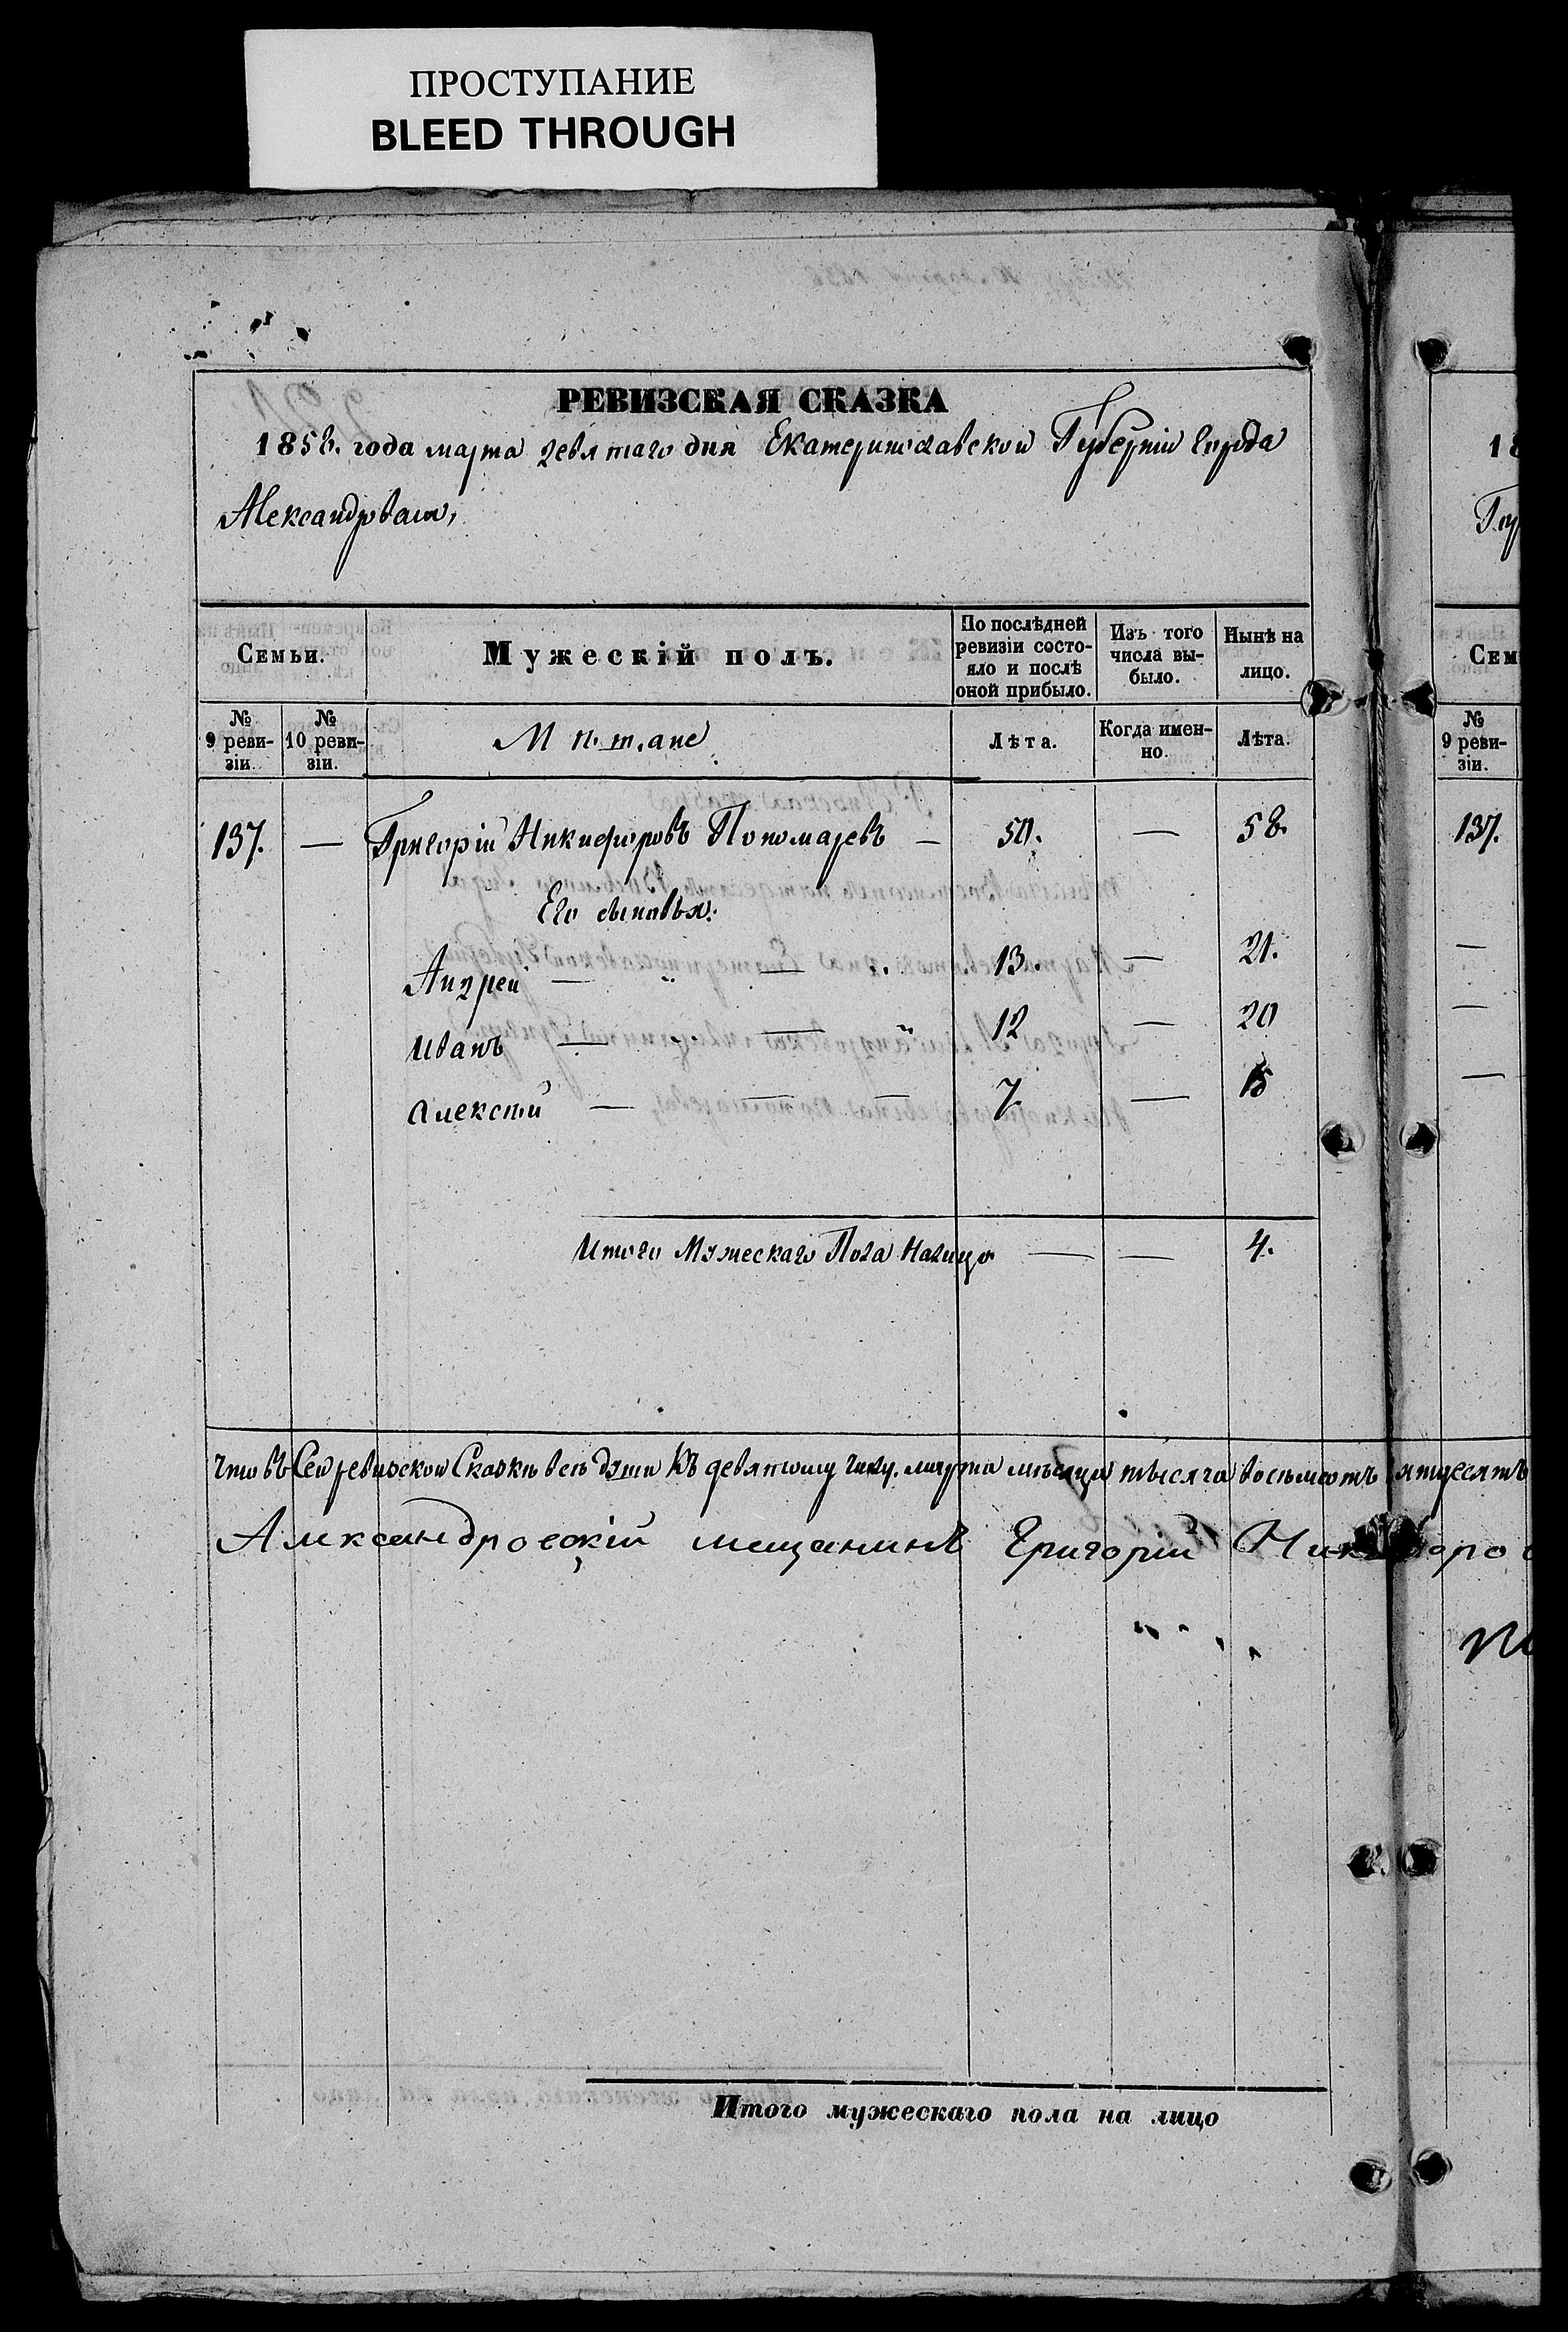 ПРОСТУПАНИЕ
BLEED THROUGH
РЕВИЗСКАЯ СКАЗКА
1858. года марта девятаго дня Екатеринославской Губернии города
Александровска,
Семьи.
Мужескій полъ.
По послѣдней ревизіи состо-
яло и послѣ
оной прибыло.
Изъ того
числа вы-
было.
Нынѣ на
лицо.
№
9 реви-
зіи.
№
10 реви-
зіи.
Мѣщане
Лѣта.
Когда имен-
но.
Лѣта.
137. — Григорій Никифоровъ Пономаревъ — 50. — 58.
Его сыновья:
Андрей — „ — „ 13. — 21.
Иванъ — „ — „ 12 — 20
Алексѣй — — — 7. — 15
Итого Мужескаго Пола Налицо — — 4.
что въ Сей ревизской Сказкѣ всѣ души къ девятому числу марта мѣсяца тысяча восемьсотъ пятдесятъ
Александровскій мещанинъ Григорий
Итого мужескаго пола на лицо
18
Сем
№
9 реви-
зіи.
137.
—
—
—